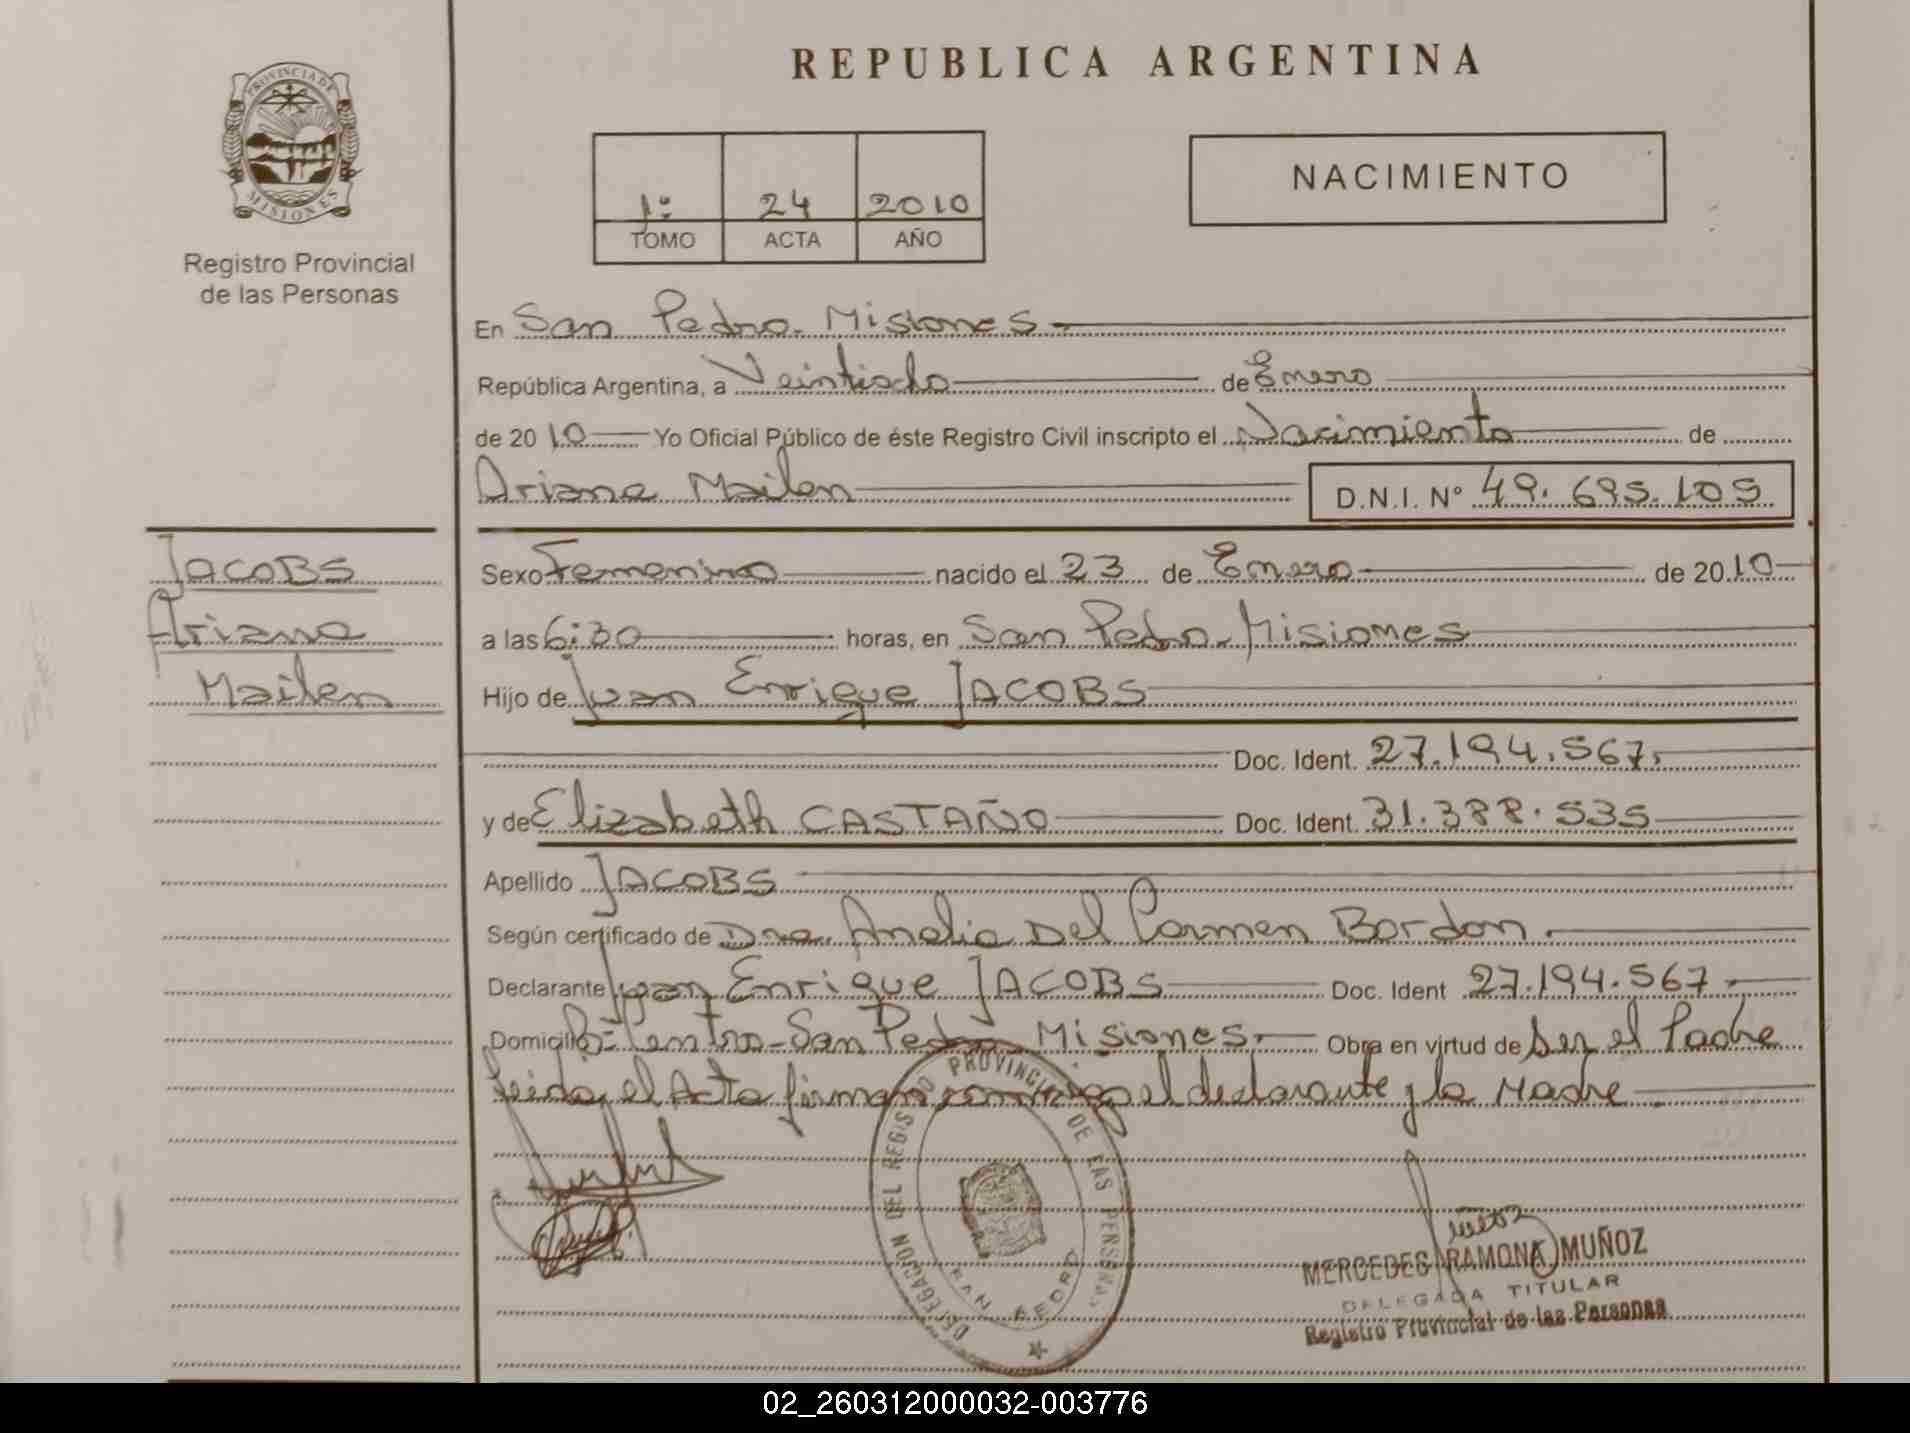 REPUBLICA ARGENTINA
PROVINCIA DE
MISIONES
Registro Provincial
de las Personas
1º 24 2010
TOMO ACTA AÑO
NACIMIENTO
En San Pedro - Misiones
República Argentina, a Veintiocho de Enero
de 2010 Yo Oficial Público de éste Registro Civil inscripto el Nacimiento de
Ariana Mailen D.N.I. Nº 49.695.105
JACOBS
Ariana
Mailen
Sexo Femenino nacido el 23 de Enero de 2010
a las 6:30 horas, en San Pedro - Misiones
Hijo de Juan Enrique JACOBS
Doc. Ident. 27.194.567
y de Elizabeth CASTAÑO Doc. Ident. 31.388.535
Apellido JACOBS
Según certificado de Dra. Analia Del Carmen Bordon.
Declarante Juan Enrique JACOBS Doc. Ident 27.194.567
Domicilio Bº Centro - San Pedro Misiones. Obra en virtud de Ser el Padre
leida el Acta firman conmigo el declarante y la Madre
DELEGACION DEL REGISTRO PROVINCIAL DE LAS PERSONAS
SAN PEDRO
MERCEDES RAMONA MUÑOZ
DELEGADA TITULAR
Registro Provincial de las Personas
02_260312000032-003776